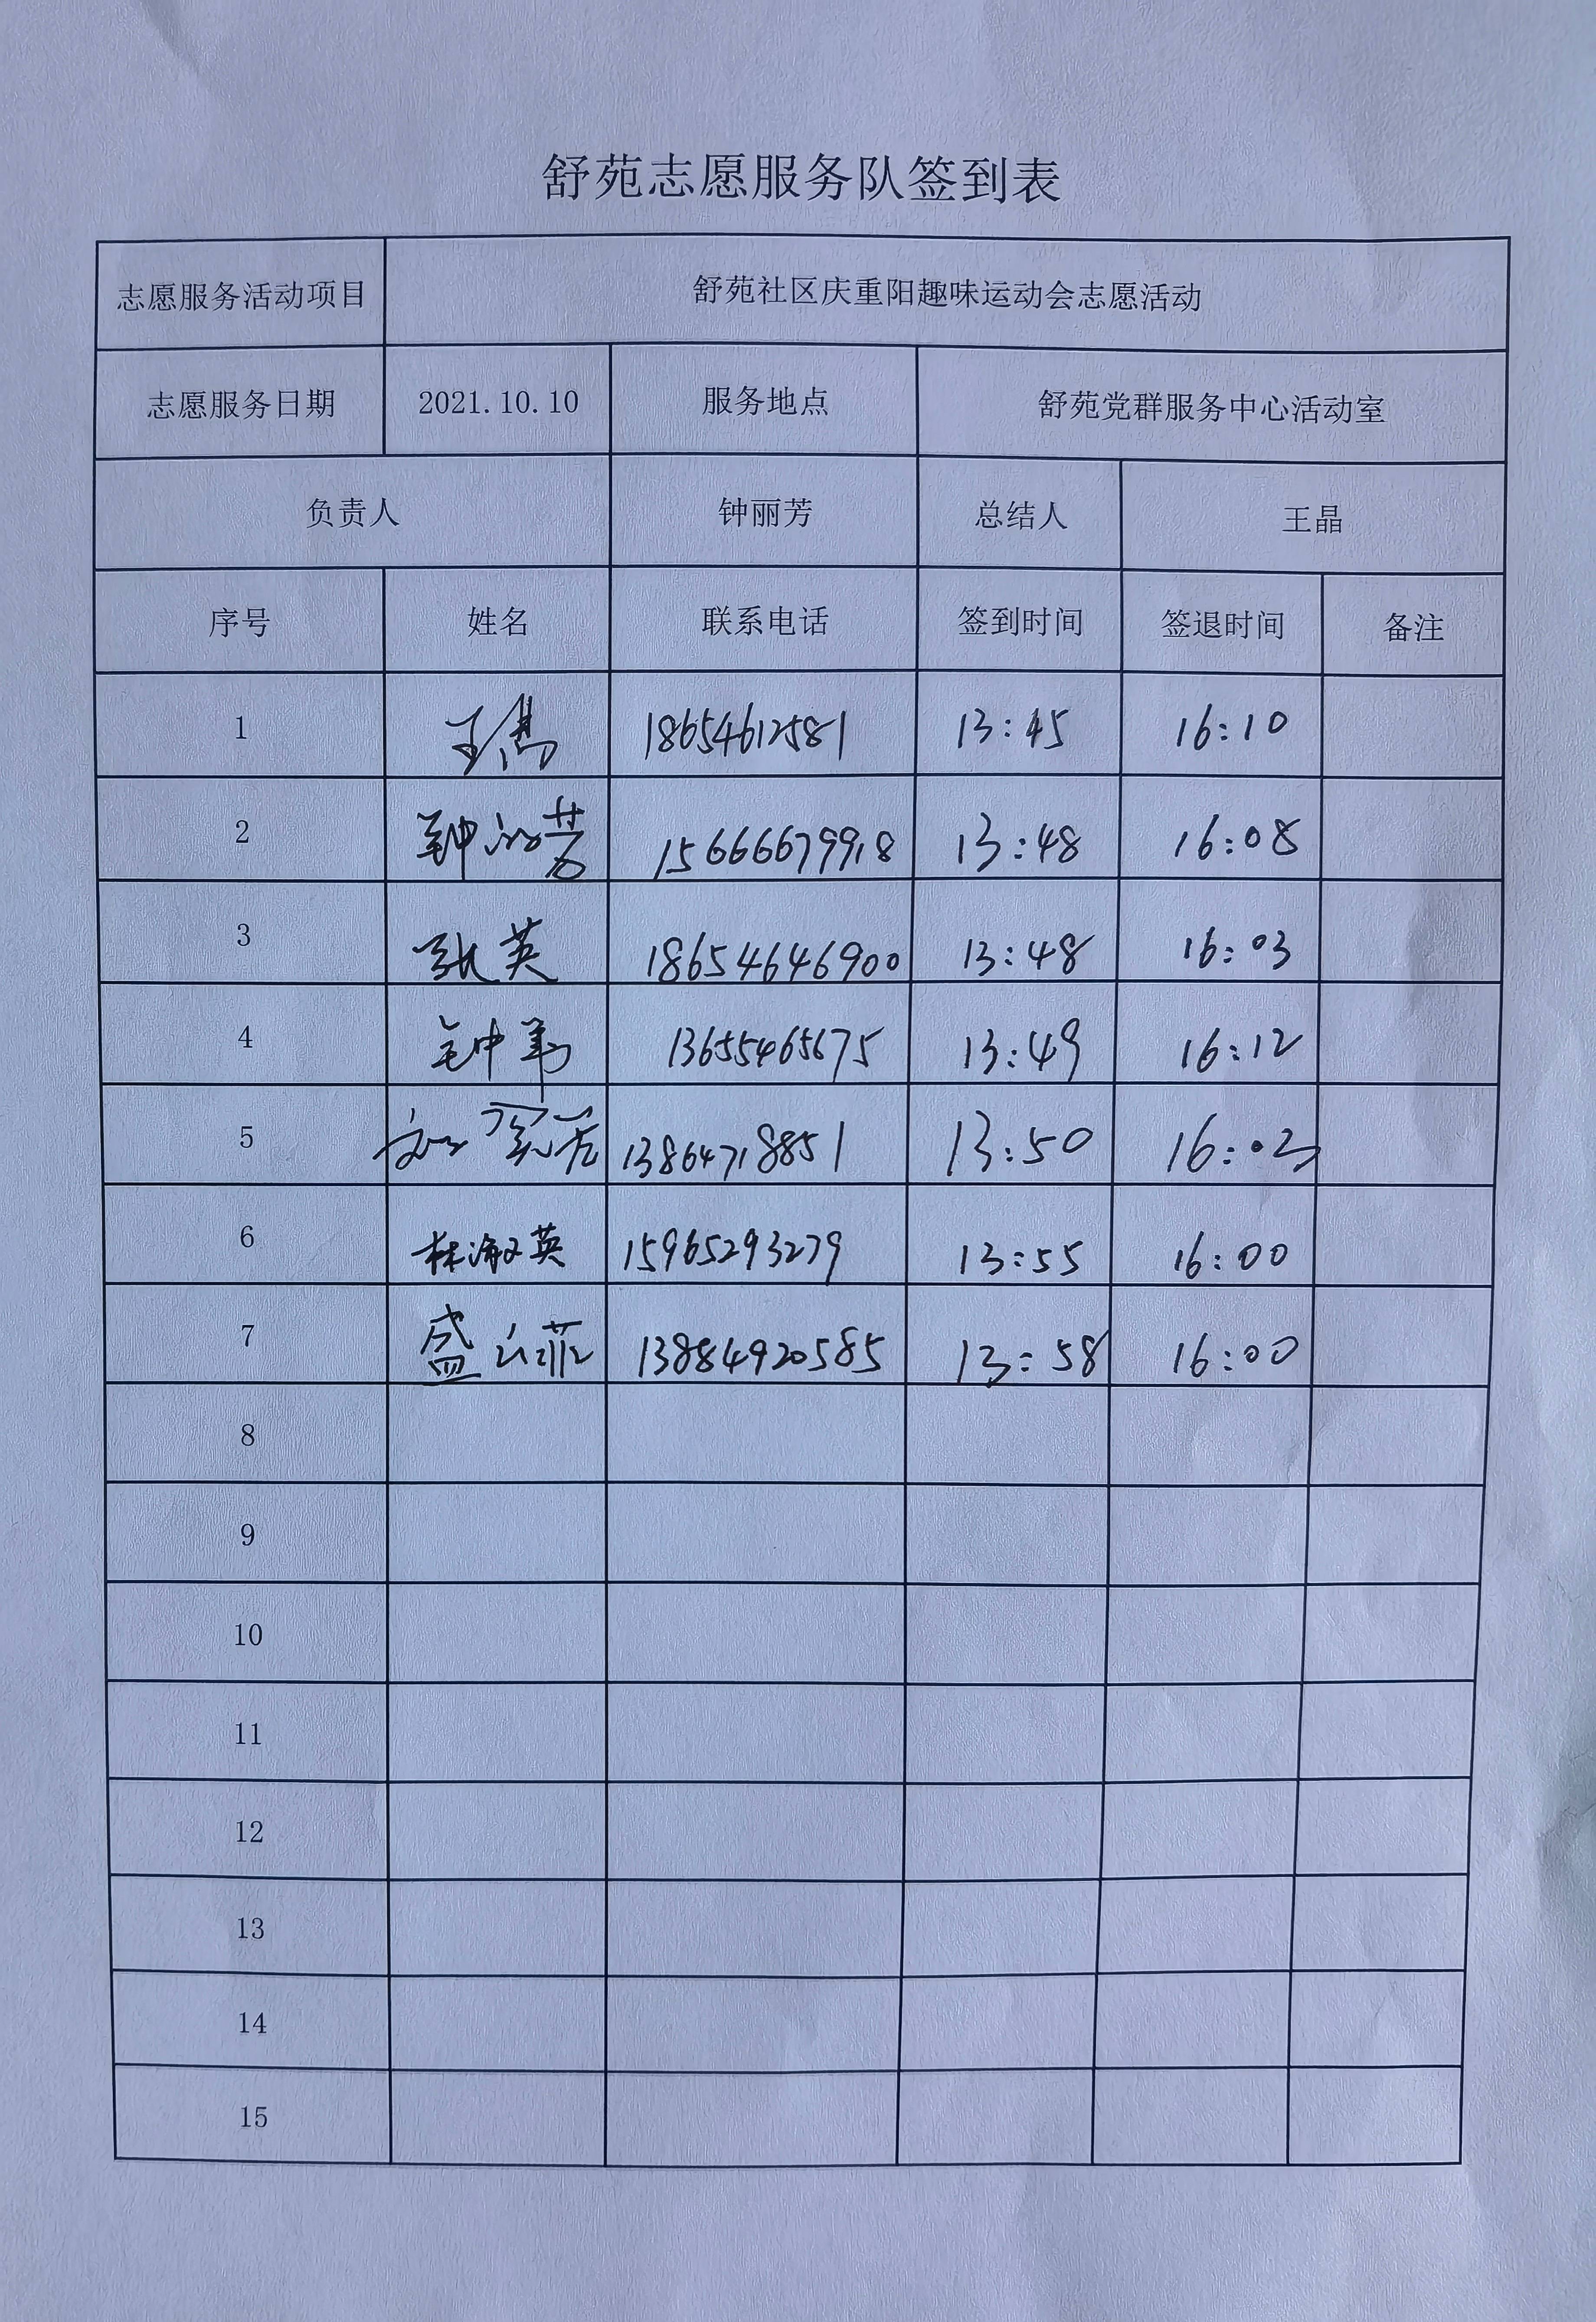 舒苑志愿服务队签到表
志愿服务活动项目 舒苑社区庆重阳趣味运动会志愿活动
志愿服务日期 2021.10.10 服务地点 舒苑党群服务中心活动室
负责人 钟丽芳 总结人 王晶
序号 姓名 联系电话 签到时间 签退时间 备注
1 王 18654612581 13:45 16:10
2 钟丽芳 15666679918 13:48 16:08
3 张英 18654646900 13:48 16:03
4 钟 13655465675 13:49 16:12
5 13864718851 13:50 16:02
6 林淑英 15965293279 13:55 16:00
7 盛云菲 13884920585 13:58 16:00
8
9
10
11
12
13
14
15